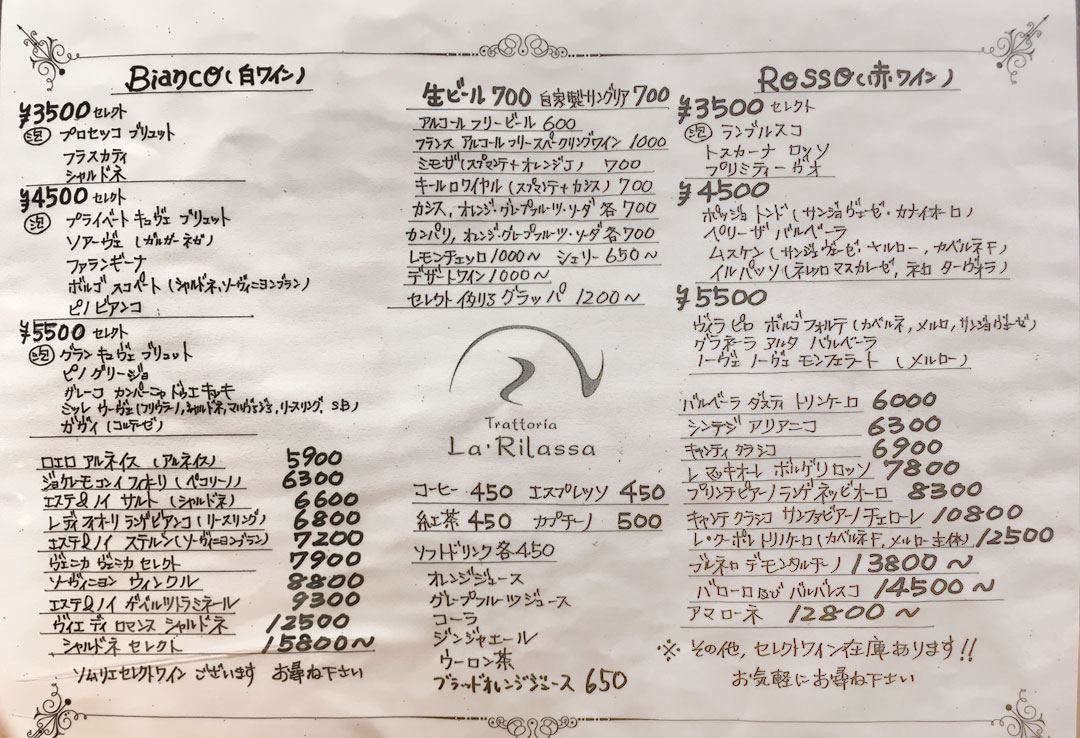 Bianco（白ワイン）
¥3500 セレクト
泡 プロセッコ ブリュット
フラスカティ
シャルドネ
¥4500 セレクト
泡 プライベート キュヴェ ブリュット
ソアーヴェ（ガルガーネガ）
ファランギーナ
ボルゴ スコペート（シャルドネ,ソーヴィニヨンブラン）
ピノ ビアンコ
¥5500 セレクト
泡 グラン キュヴェ ブリュット
ピノ グリージョ
グレーコ カンパーニャ ドゥエ
ミッレ ウーヴェ（フリウラーノ,シャルドネ, リースリング, SB）
ガヴィ（コルテーゼ）
ロエロ アルネイス（アルネイス） 5900
（ペコリーノ） 6300
エステ&ノイ サルト（シャルドネ） 6600
レ ディ オオーリ ランゲビアンコ（リースリング） 6800
エステ&ノイ ステルン（ソーヴィニヨンブラン） 7200
ヴェニカ ヴェニカ セレクト 7900
ソーヴィニヨン ウィンクル 8800
エステ&ノイ ゲベルツトラミネール 9300
ヴィエ ディ ロマンス シャルドネ 12500
シャルドネ セレクト 15800〜
ソムリエセレクトワイン ございます お尋ね下さい
生ビール 700 自家製サングリア 700
アルコール フリービール 600
フランス アルコールフリースパークリングワイン 1000
ミモザ（スプマンテ+オレンジJ） 700
キールロワイヤル（スプマンテ+カシス） 700
カシス, オレンジ・グレープフルーツ・ソーダ 各700
カンパリ, オレンジ・グレープフルーツ・ソーダ 各700
レモンチェッロ 1000〜 シェリー 650〜
デザートワイン 1000〜
セレクト グラッパ 1200〜
Trattoria
La・Rilassa
コーヒー 450 エスプレッソ 450
紅茶 450 カプチーノ 500
ソフトドリンク 各450
オレンジジュース
グレープフルーツジュース
コーラ
ジンジャエール
ウーロン茶
ブラッドオレンジジュース 650
Rosso（赤ワイン）
¥3500 セレクト
泡 ランブルスコ
トスカーナ ロッソ
プリミティーヴォ
¥4500
ポッジョ トンド（サンジョヴェーゼ・カナイオーロ）
ペリーザ バルベーラ
ムスケン（サンジョヴェーゼ・メルロー, カベルネF）
イルパッソ（ネレッロ マスカレーゼ, ネロ ダーヴォラ）
¥5500
ヴィラ ピロ ボルゴフォルテ（カベルネ, メルロ, サンジョヴェーゼ）
グラネーラ アルタ バルベーラ
ノーヴェ ノーヴェ モンフェラート（メルロー）
バルベーラ ダスティ トリンケーロ 6000
シンテジ アリアニコ 6300
キャンティ クラシコ 6900
レ マッキオーレ ボルゲリロッソ 7800
プリンチピアーノ ランゲ ネッビオーロ 8300
キャンティ クラシコ サンファビアーノ チェローレ 10800
レ・クーポレ トリノーロ（カベルネF, メルロー主体） 12500
ブルネロ デ モンタルチーノ 13800〜
バローロ及び バルバレスコ 14500〜
アマローネ 12800〜
※ その他, セレクトワイン在庫あります!!
お気軽にお尋ね下さい